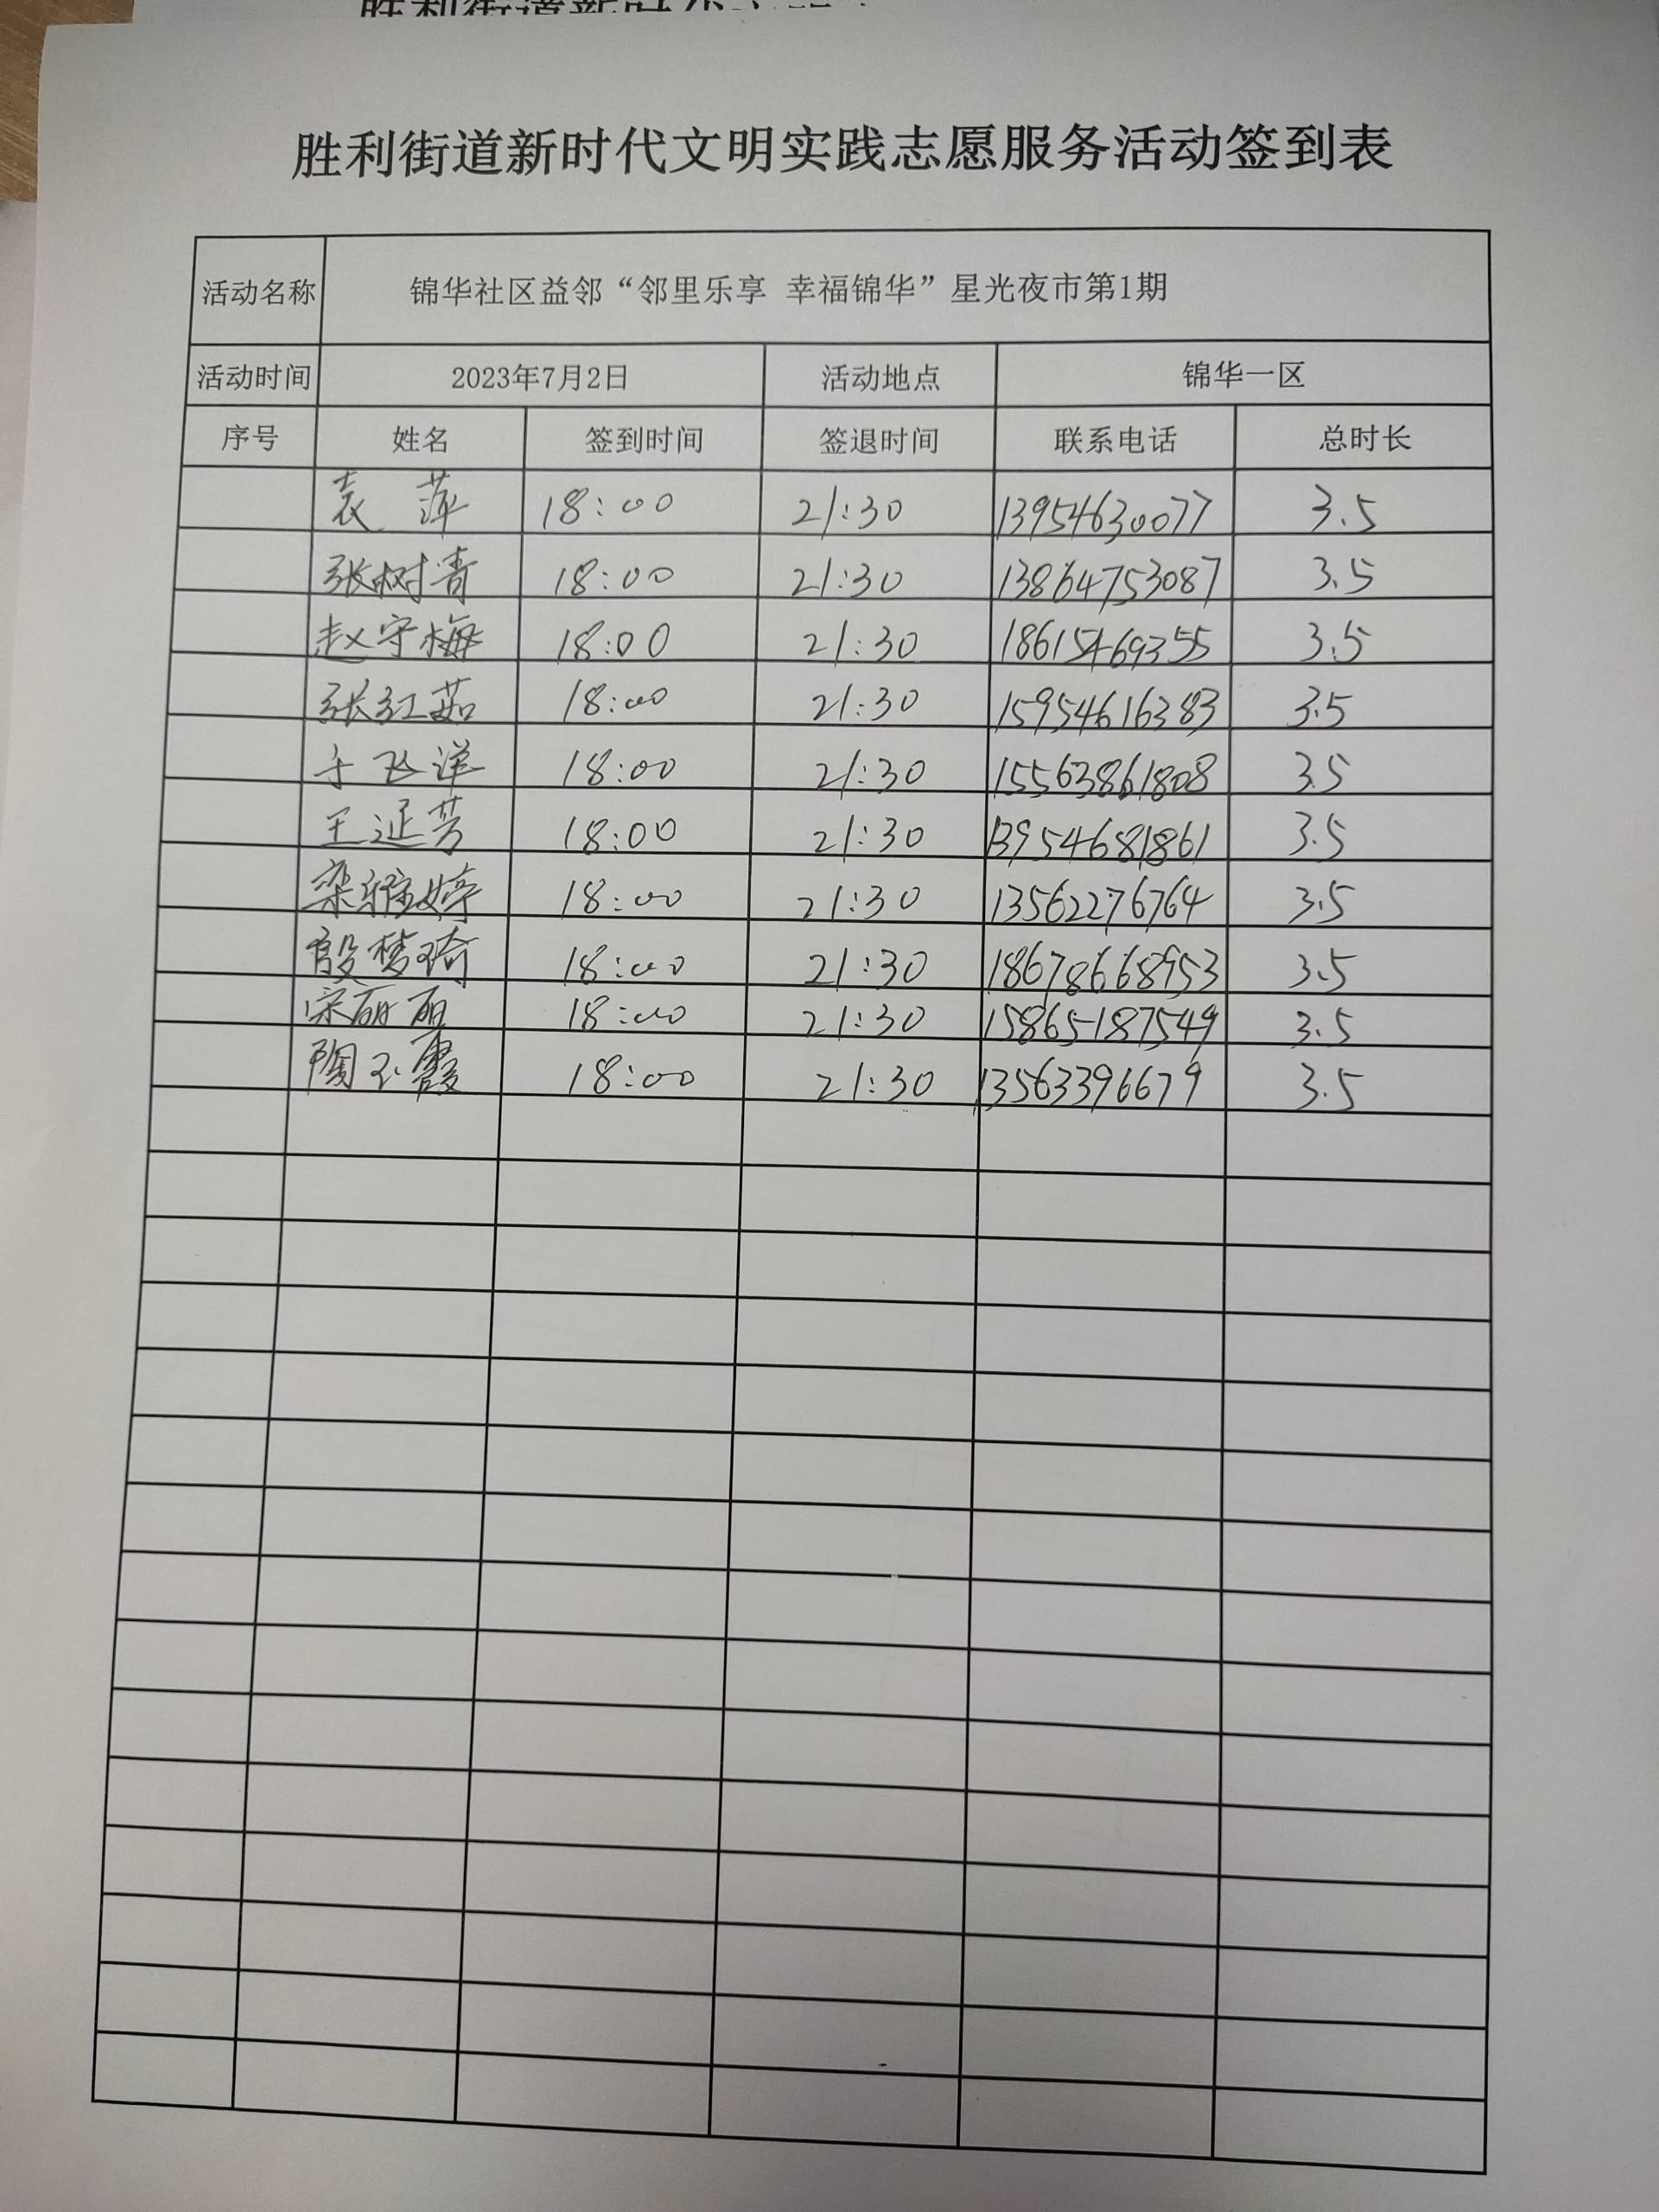 胜利街道新时代文明实践志愿服务活动签到表
活动名称 锦华社区益邻“邻里乐享 幸福锦华”星光夜市第1期
活动时间 2023年7月2日 活动地点 锦华一区
序号 姓名 签到时间 签退时间 联系电话 总时长
袁萍 18:00 21:30 13954630077 3.5
张树青 18:00 21:30 13864753087 3.5
赵守梅 18:00 21:30 18615469355 3.5
张红茹 18:00 21:30 15954616383 3.5
于飞洋 18:00 21:30 15563861808 3.5
王延芳 18:00 21:30 13954681861 3.5
栾雅婷 18:00 21:30 13562276764 3.5
殷梦琦 18:00 21:30 18678668953 3.5
宋丽丽 18:00 21:30 15865187549 3.5
陶玉霞 18:00 21:30 13563396679 3.5